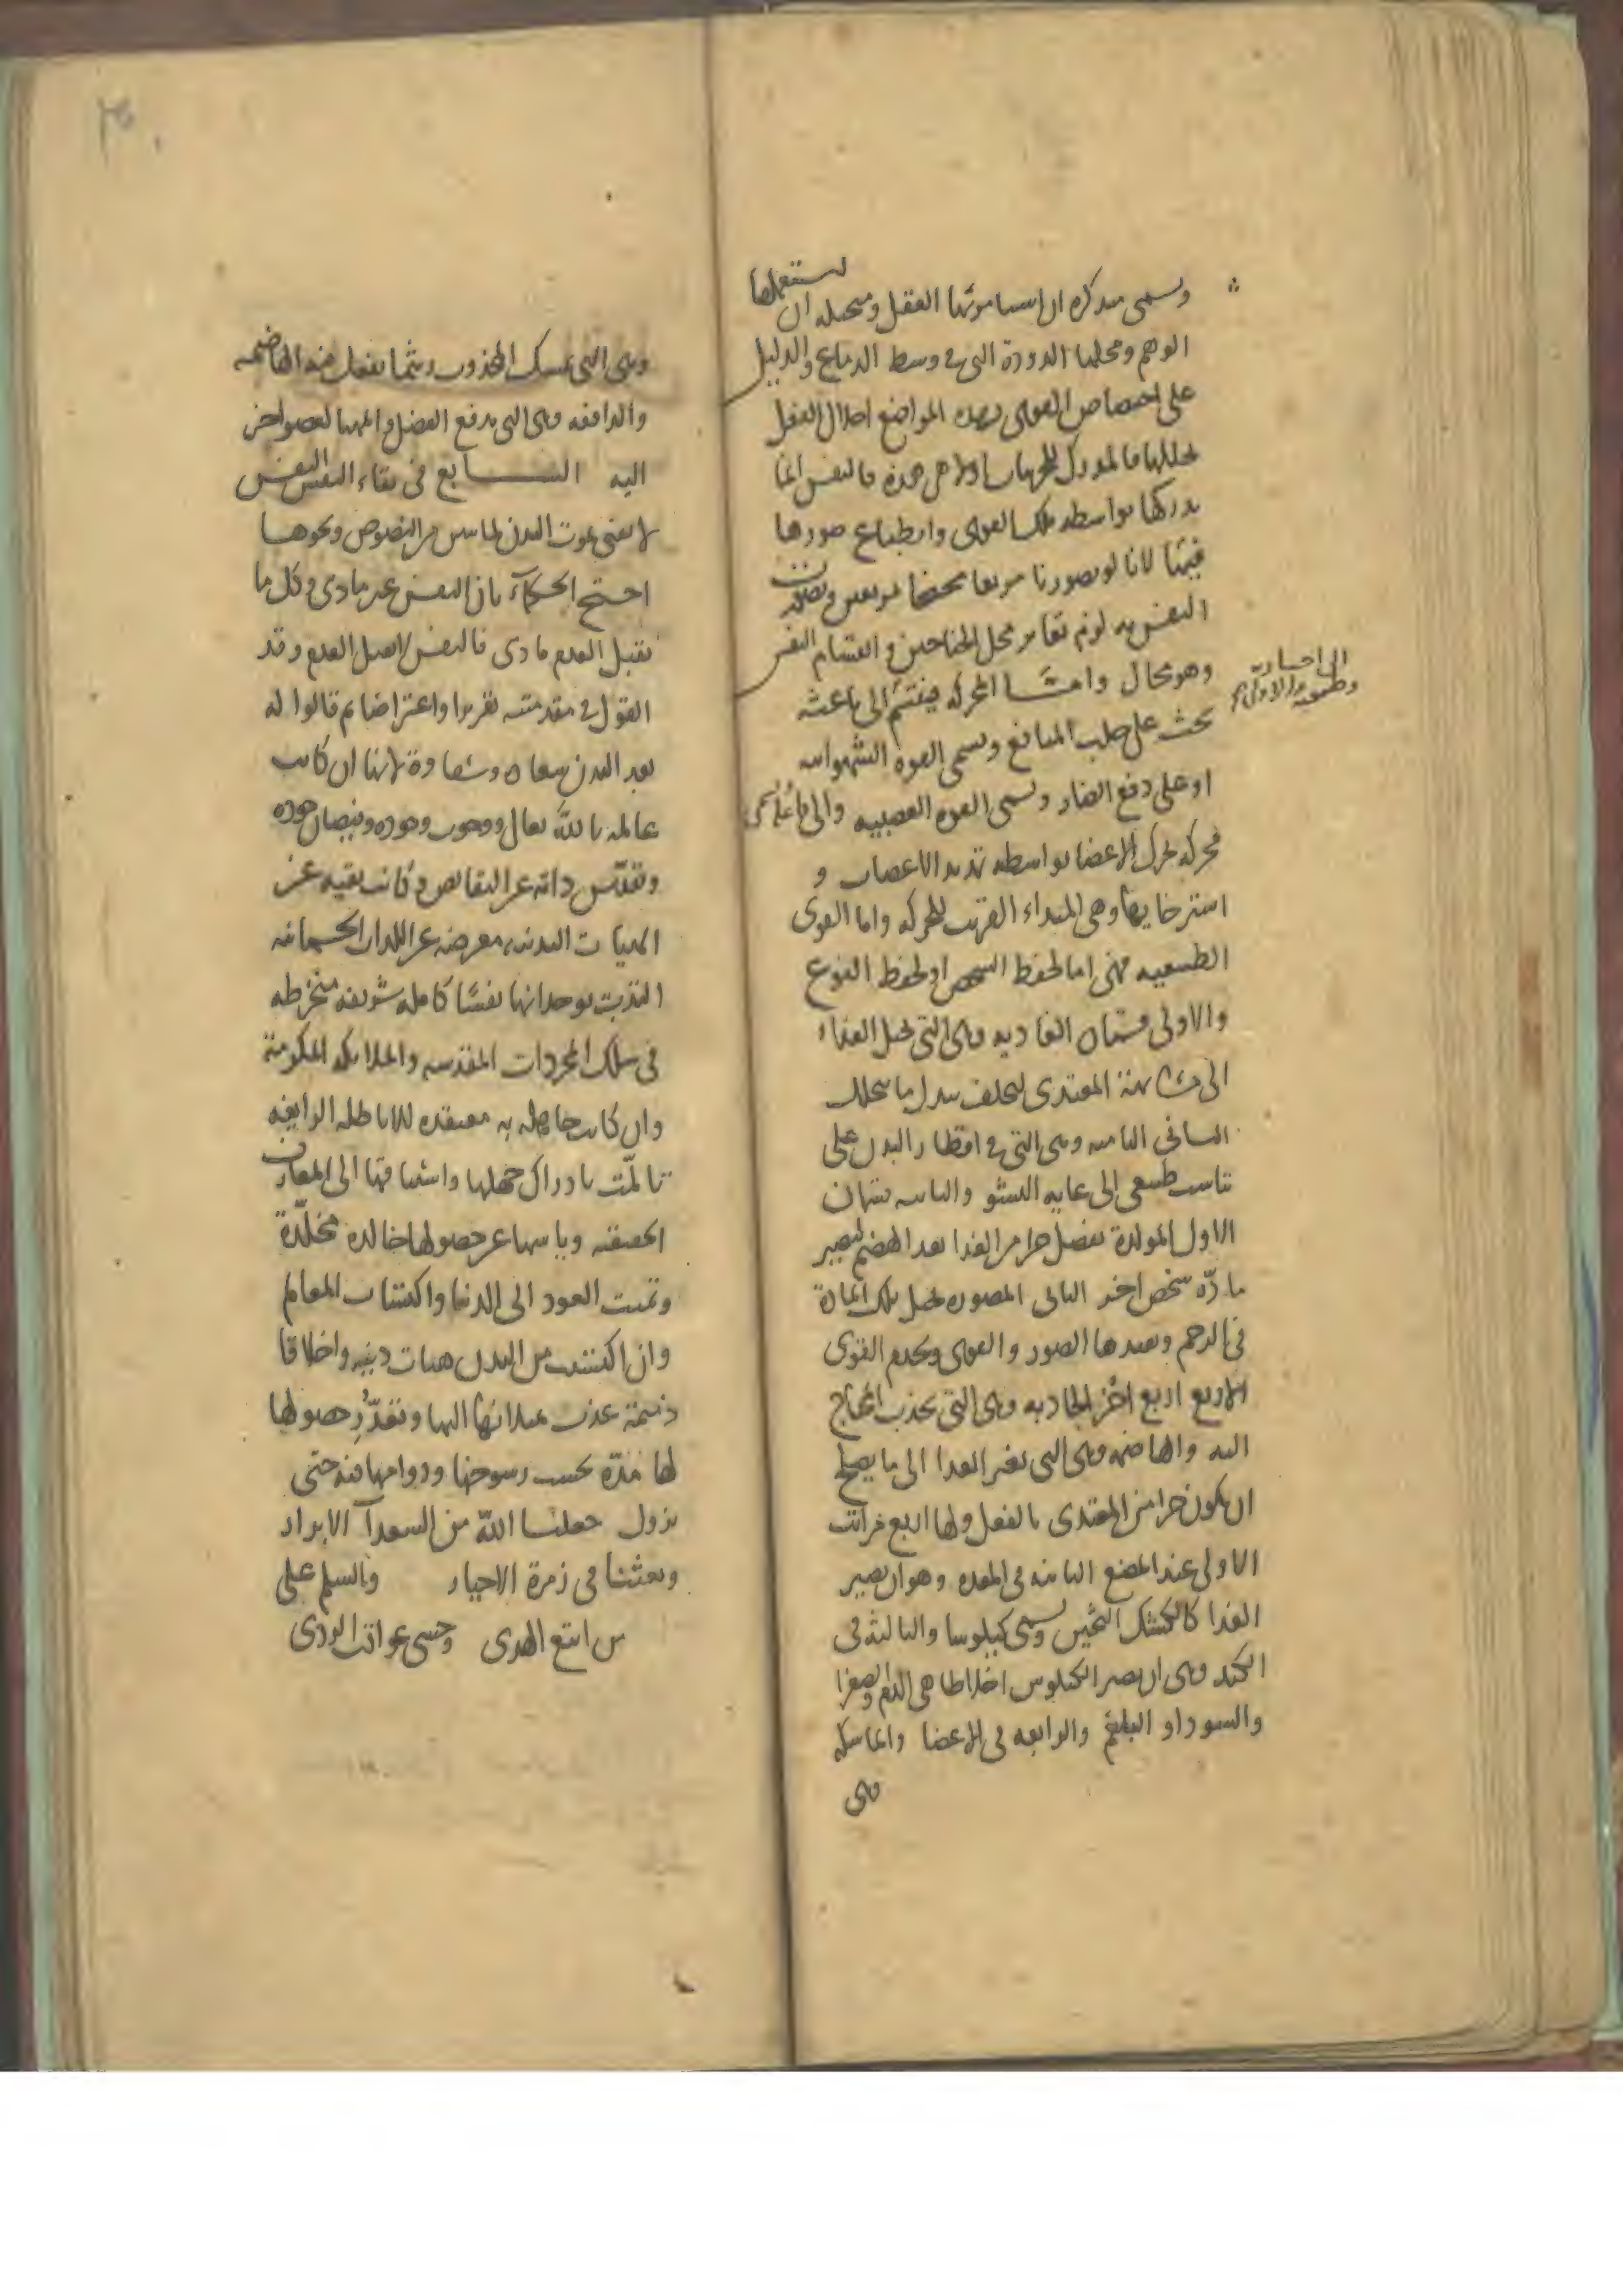 وسمى مفكرة ان استعملها العقل ومتخيلة ان استعملها
الوهم ومحلها الدودة التى فى وسط الدماغ والدليل
على اختصاص القوى بهذه المواضع اختلال الفعل
بخللها فالمدرك للجزئيات اولا هى هذه فالنفس انما
يدركها بواسطه تلك القوى وانطباع صورها
فيها لانا لو تصورنا مربعا مجنحا بمربعين
النفس به لزم تغاير محل الجناحين وانقسام النفس
وهو محال واما المحركه فينقسم الى باعثه
تحث على جلب المنافع ويسمى القوه الشهوانيه
او على دفع المضار ويسمى القوه الغضبيه والى فاعلة
محركه تحرك الاعضا بواسطه تمديد الاعصاب و
استرخايها وهى المبداء القريب للحركه واما القوى
الطبيعيه فهى اما لحفظ الشخص او لحفظ النوع
والاولى قسمان الغاذيه وهى التى تحيل الغذاء
الى مشابهة المغتذى ليخلف بدل ما يتحلل
الثانى الناميه وهى التى فى اقطار البدن على
تناسب طبيعى الى غايه النشو والثانيه قسمان
الاول المولدة تفصل جزا من الغذا بعد الهضم ليصير
مادّه شخص اخر الثانى المصوره تحيل تلك المادة
فى الرحم وتفيدها الصور والقوى وتخدم القوى
الاربع اربع اخر الجاذبه وهى التى تجذب المحتاج
اليه والهاضمه وهى التى تغير الغذا الى ما يصلح
ان يكون جزا من المغتذى بالفعل ولها اربع مراتب
الاولى عند المضغ الثانيه فى المعده وهو ان يصير
الغذا كالكشك الثخين ويسمى كيلوسا والثالثه فى
الكبد وهى ان يصير الكيلوس اخلاطا هى الدم والصفرا
والسودا والبلغم والرابعه فى الاعضا والماسكه
وهى
الى اختيارية
وطبيعية
وهى التى تمسك المجذوب ريثما يفعل فيه الهاضمه
والدافعه وهى التى تدفع الفضل والمهيا لعضو اخر
اليه السابع فى بقاء النفس النفس
لا تفنى بموت البدن لما سبق من النصوص ونحوها
احتج الحكماء بان النفس غير مادى وكل ما
يقبل العدم مادى فالنفس لا تقبل العدم وقد
القول فى مقدمتيه تقريرا واعتراضا ثم قالوا له
بعد البدن سعادة وشقاوة لانها ان كانت
عالمة بالله تعالى ووجوب وجوده وفيضان جوده
وتقدّس ذاته عن النقايص وكانت نقيه عن
الهيات البدنيه معرضه عن اللذات الجسمانيه
التذت بوجدانها نفسًا كامله شريفه منخرطه
فى سلك المجردات المقدسه والملايكه المكرمة
وان كانت جاهله به معتقده للاباطل الزايغه
تالمّت بادراك جهلها واشتياقها الى المعارف
الحقيقيه وياسها عن حصولها خالده مخلّدة
وتمنت العود الى الدنيا واكتساب المعالم
وان اكتسبت من البدن هيات دنيه واخلاقا
ذميمة عذبت بميلانها اليها وتعذّر حصولها
لها مدّة بحسب رسوخها ودوامها فيه حتى
يزول جعلنا الله من السعدآ الابرار
وبعثنا فى زمرة الاخيار والسلم على
من اتبع الهدى وخشى عواقب الردى